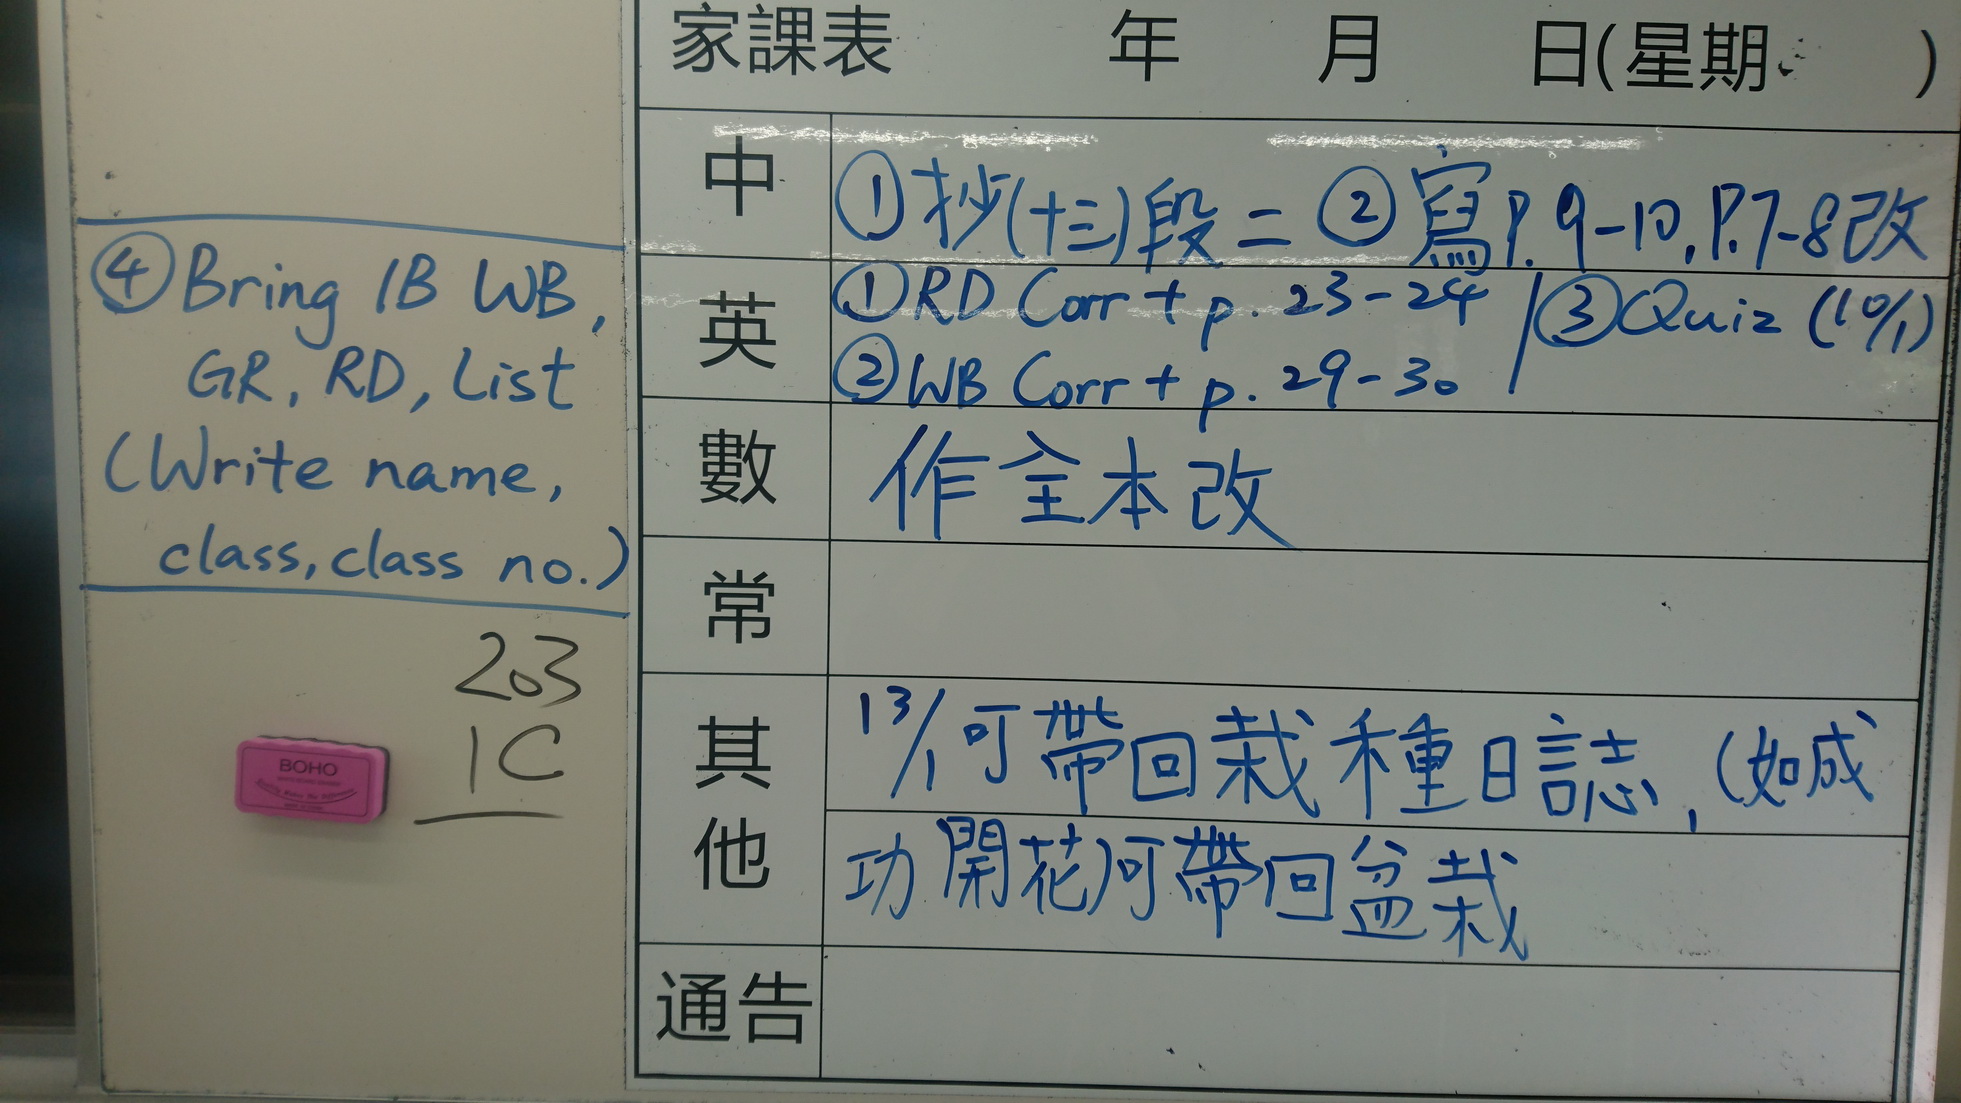 家課表 年 月 日(星期 )
中
①抄(十三)段二 ②寫P.9-10,P.7-8改
英
①RD Corr + p. 23-24 / ③Quiz (10/1)
②WB Corr + p. 29-30
④Bring 1B WB,
GR, RD, List
(Write name,
class, class no.)
數
作全本改
常
其他
13/1可帶回栽種日誌,(如成
功開花)可帶回盆栽
通告
203
1C
BOHO